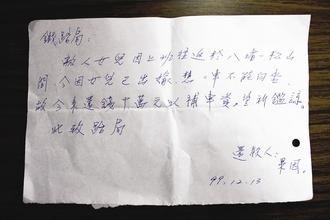 鐵路局:
敝人女兒因上班往返於八堵-松山
間 今因女兒已出嫁, 想 事不能白坐
故今來還錢十萬元以補車資, 望祈鑑諒。
此致路局
還款人:
果因。
99.12.13